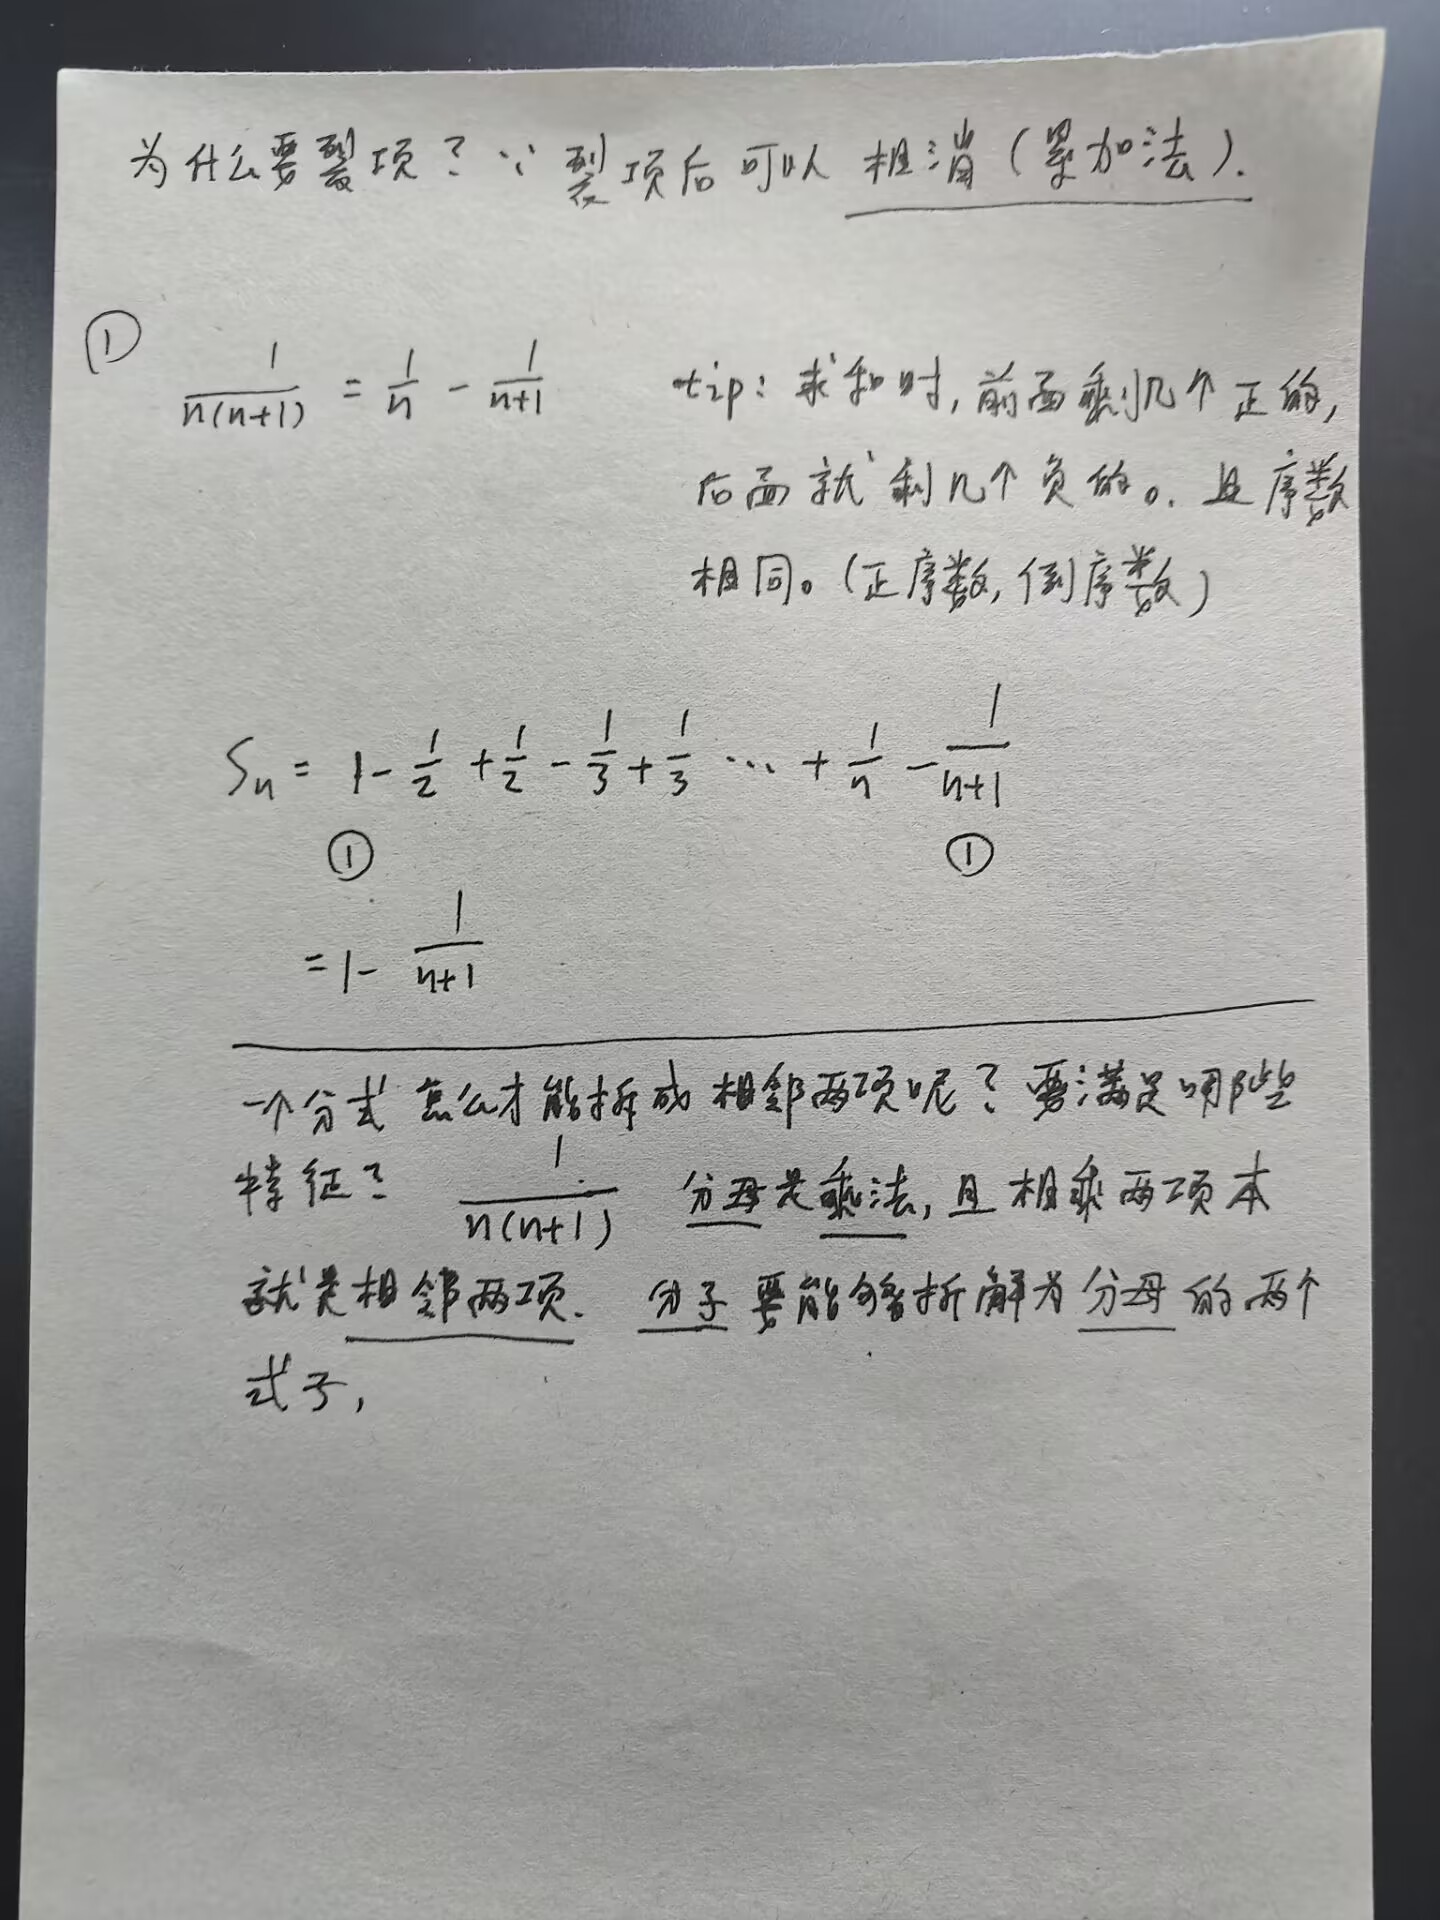 为什么要裂项？∵裂项后可以相消（累加法）.
① 1/n(n+1) = 1/n - 1/n+1
tip：求和时，前面剩几个正的，
后面就剩几个负的。且序数
相同。（正序数，倒序数）
Sn = 1 - 1/2 + 1/2 - 1/3 + 1/3 … + 1/n - 1/n+1
① ①
= 1 - 1/n+1
一个分式怎么才能拆成相邻两项呢？要满足哪些
特征？ 1/n(n+1) 分母是乘法，且相乘两项本
就是相邻两项. 分子要能够拆解为分母的两个
式子，